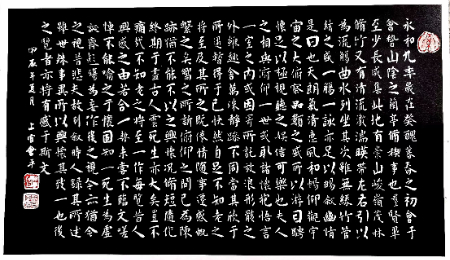 永和九年歲在癸丑暮春之初會于
會稽山陰之蘭亭脩禊事也群賢畢
至少長咸集此地有崇山峻嶺茂林
脩竹又有清流激湍暎帶左右引以
為流觴曲水列坐其次雖無絲竹管
絃之盛一觴一詠亦足以暢敘幽情
是日也天朗氣清惠風和暢仰觀宇
宙之大俯察品類之盛所以遊目騁
懷足以極視聽之娛信可樂也夫人
之相與俯仰一世或取諸懷抱悟言
一室之內或因寄所託放浪形骸之
外雖趣舍萬殊靜躁不同當其欣於
所遇暫得於己怏然自足不知老之
將至及其所之既倦情隨事遷感慨
係之矣向之所欣俛仰之間已為陳
跡猶不能不以之興懷況脩短隨化
終期于盡古人云死生亦大矣豈不
痛哉每覽昔人
興感之由若合一契未嘗不臨文嗟
悼不能喻之於懷固知一死生為虛
誕齊彭殤為妄作後之視今亦猶今
之視昔悲夫故列敘時人錄其所述
雖世殊事異所以興懷其致一也後
之覽者亦將有感於斯文
甲辰年夏月